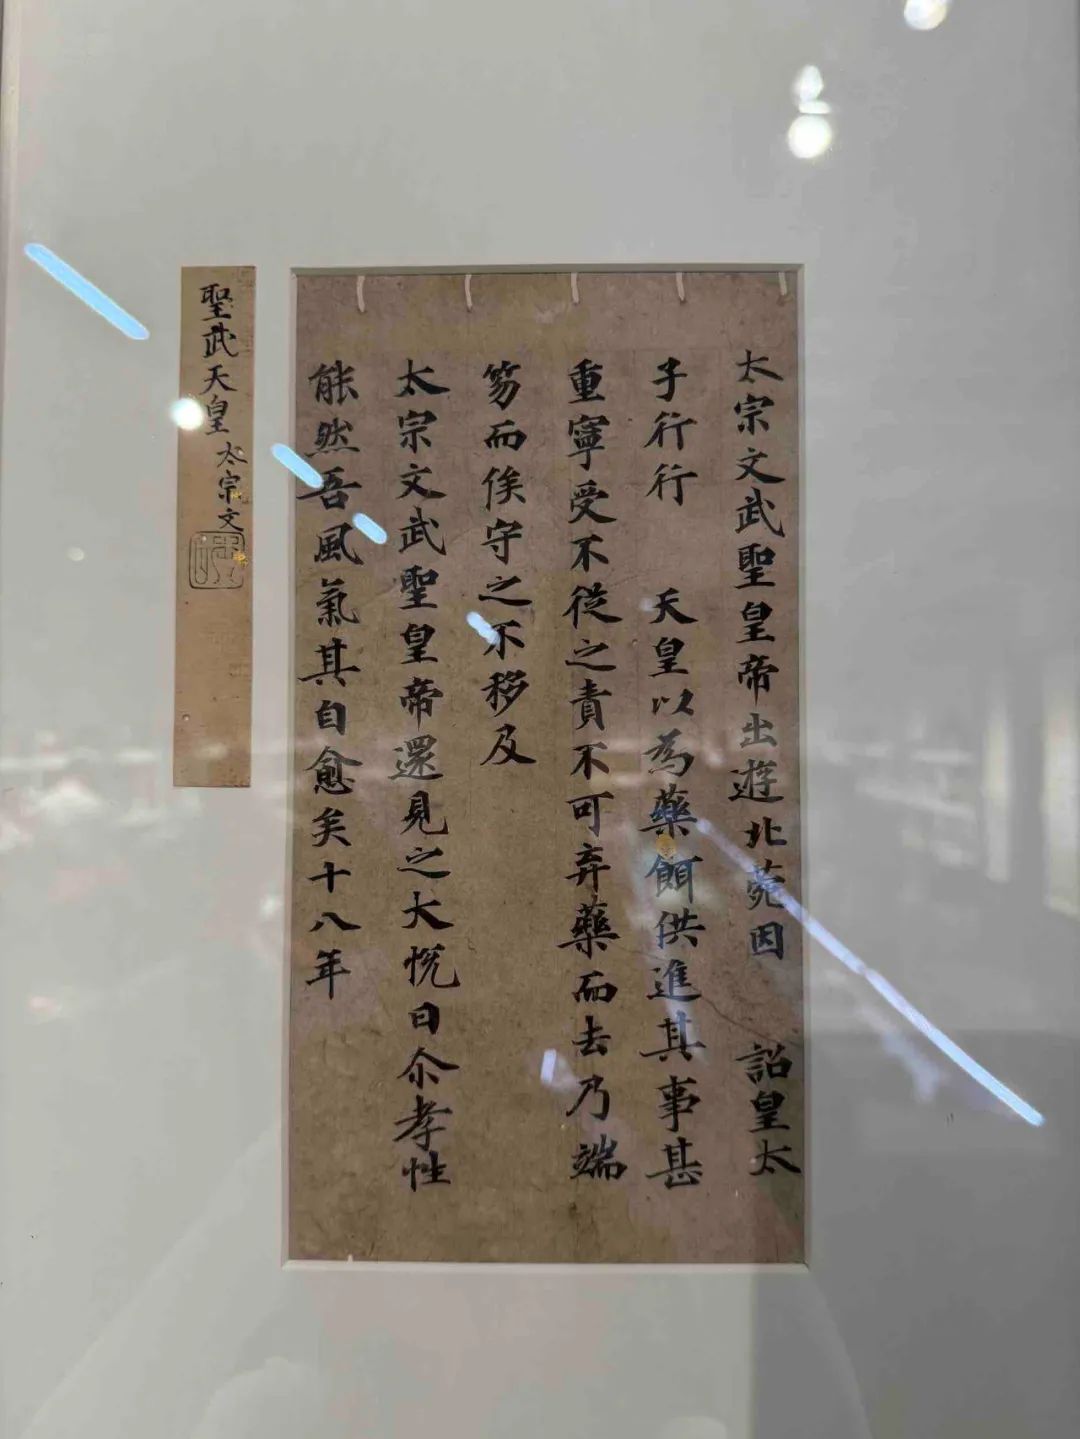 太宗文武聖皇帝出遊北菀因　詔皇太
子行行　天皇以為藥餌供進其事甚
重寧受不從之責不可弃藥而去乃端
笏而俟守之不移及
太宗文武聖皇帝還見之大恱曰尒孝性
能然吾風氣其自愈矣十八年
聖武天皇
太宗文